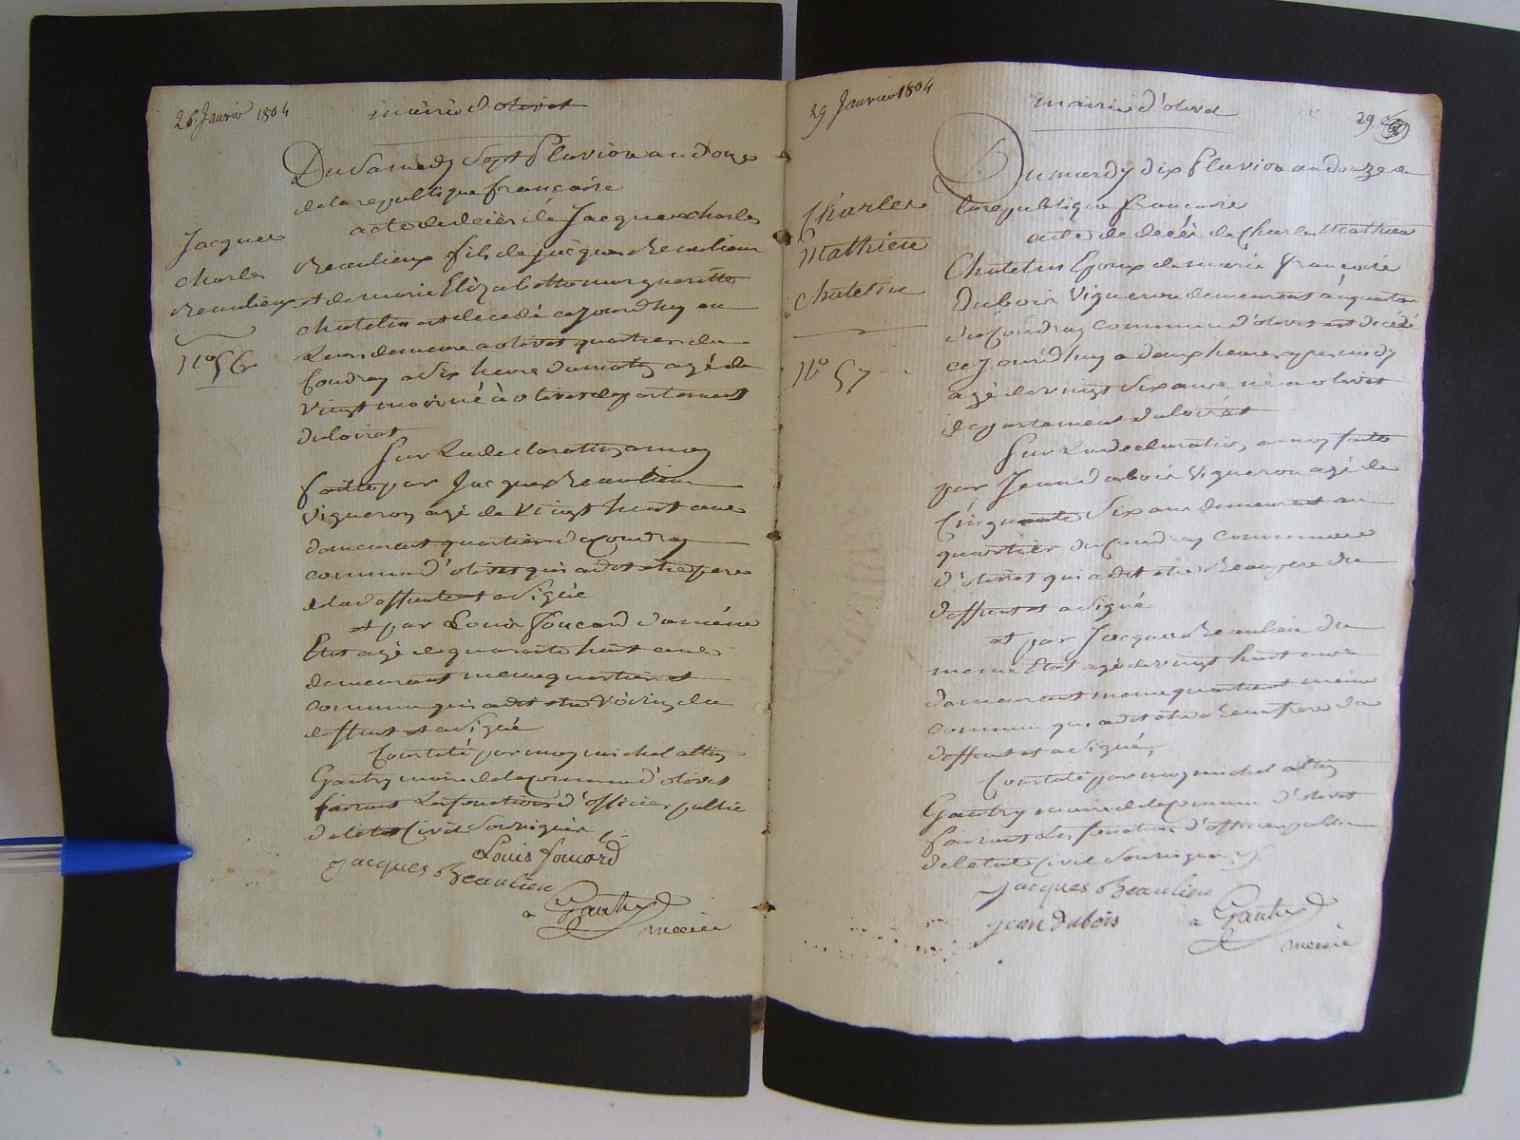 26 Janvier 1804
mairie d'olivet
Du Samedy Sept Pluviose an douze
de la republique francaise
acte de decès de Jacques charles
Jacques
charles
Beaulieux
N.o 56
Beaulieux fils de jacques Beaulieu
et de marie Elizabette margueritte
chatelin est decedé cejourdhuy en
Sa demeure a olivet quartier du
Coudray a Six heure du matin agé de
Vingt mois né à olivet departement
du loiret
Sur La declaration a moy
faitte par Jacques Beaulieu
Vigneron agé de Vingt huit ans
demeurant quartier du Coudray
commune d'olivet qui a dit etre pere
de la deffunte et a Signé
et par Louis foucard du mème
Etat agé de quarante huit ans
demeurant meme quartier et
commune qui a dit etre Voisin du
deffunt et a Signé
Constaté par moy michel altin
Gautry maire de la commune d'olivet
faisant Les fonctions d'officier public
de letat Civil Soussigné
Louis foucard
Jacques Beaulieu
a Gautry
maire
29 Janvier 1804
mairie d'olivet
29
Du mardy dix Pluviose an douze de
la republique francaise
acte de decès de Charles Mathieu
Charles
Mathieu
chatelin
N.o 57
Chatelin Epoux de marie francoise
Dubois Vigneron demeurant au quartier
du Coudray commune d'olivet est decédé
ce jourdhuy a deux heures apres midy
agé de vingt Six ans né a olivet
departement du loiret
Sur La declaration a moy faitte
par Jean dubois Vigneron agé de
Cinquante Six ans demeurant au
quartier du Coudray commune
d'olivet qui a dit etre Beaupere du
deffunt et a Signé
et par Jacques Beaulieu du
meme Etat agé de vingt huit ans
demeurant meme quartier et meme
commune qui a dit etre Beaufrere du
deffunt et a Signé
Constaté par moy michel altin
Gautry maire de la commune d'olivet
faisant Les fonctions d'officier public
de letat Civil Soussigné
Jacques Beaulieu
jean dubois
a Gautry
maire